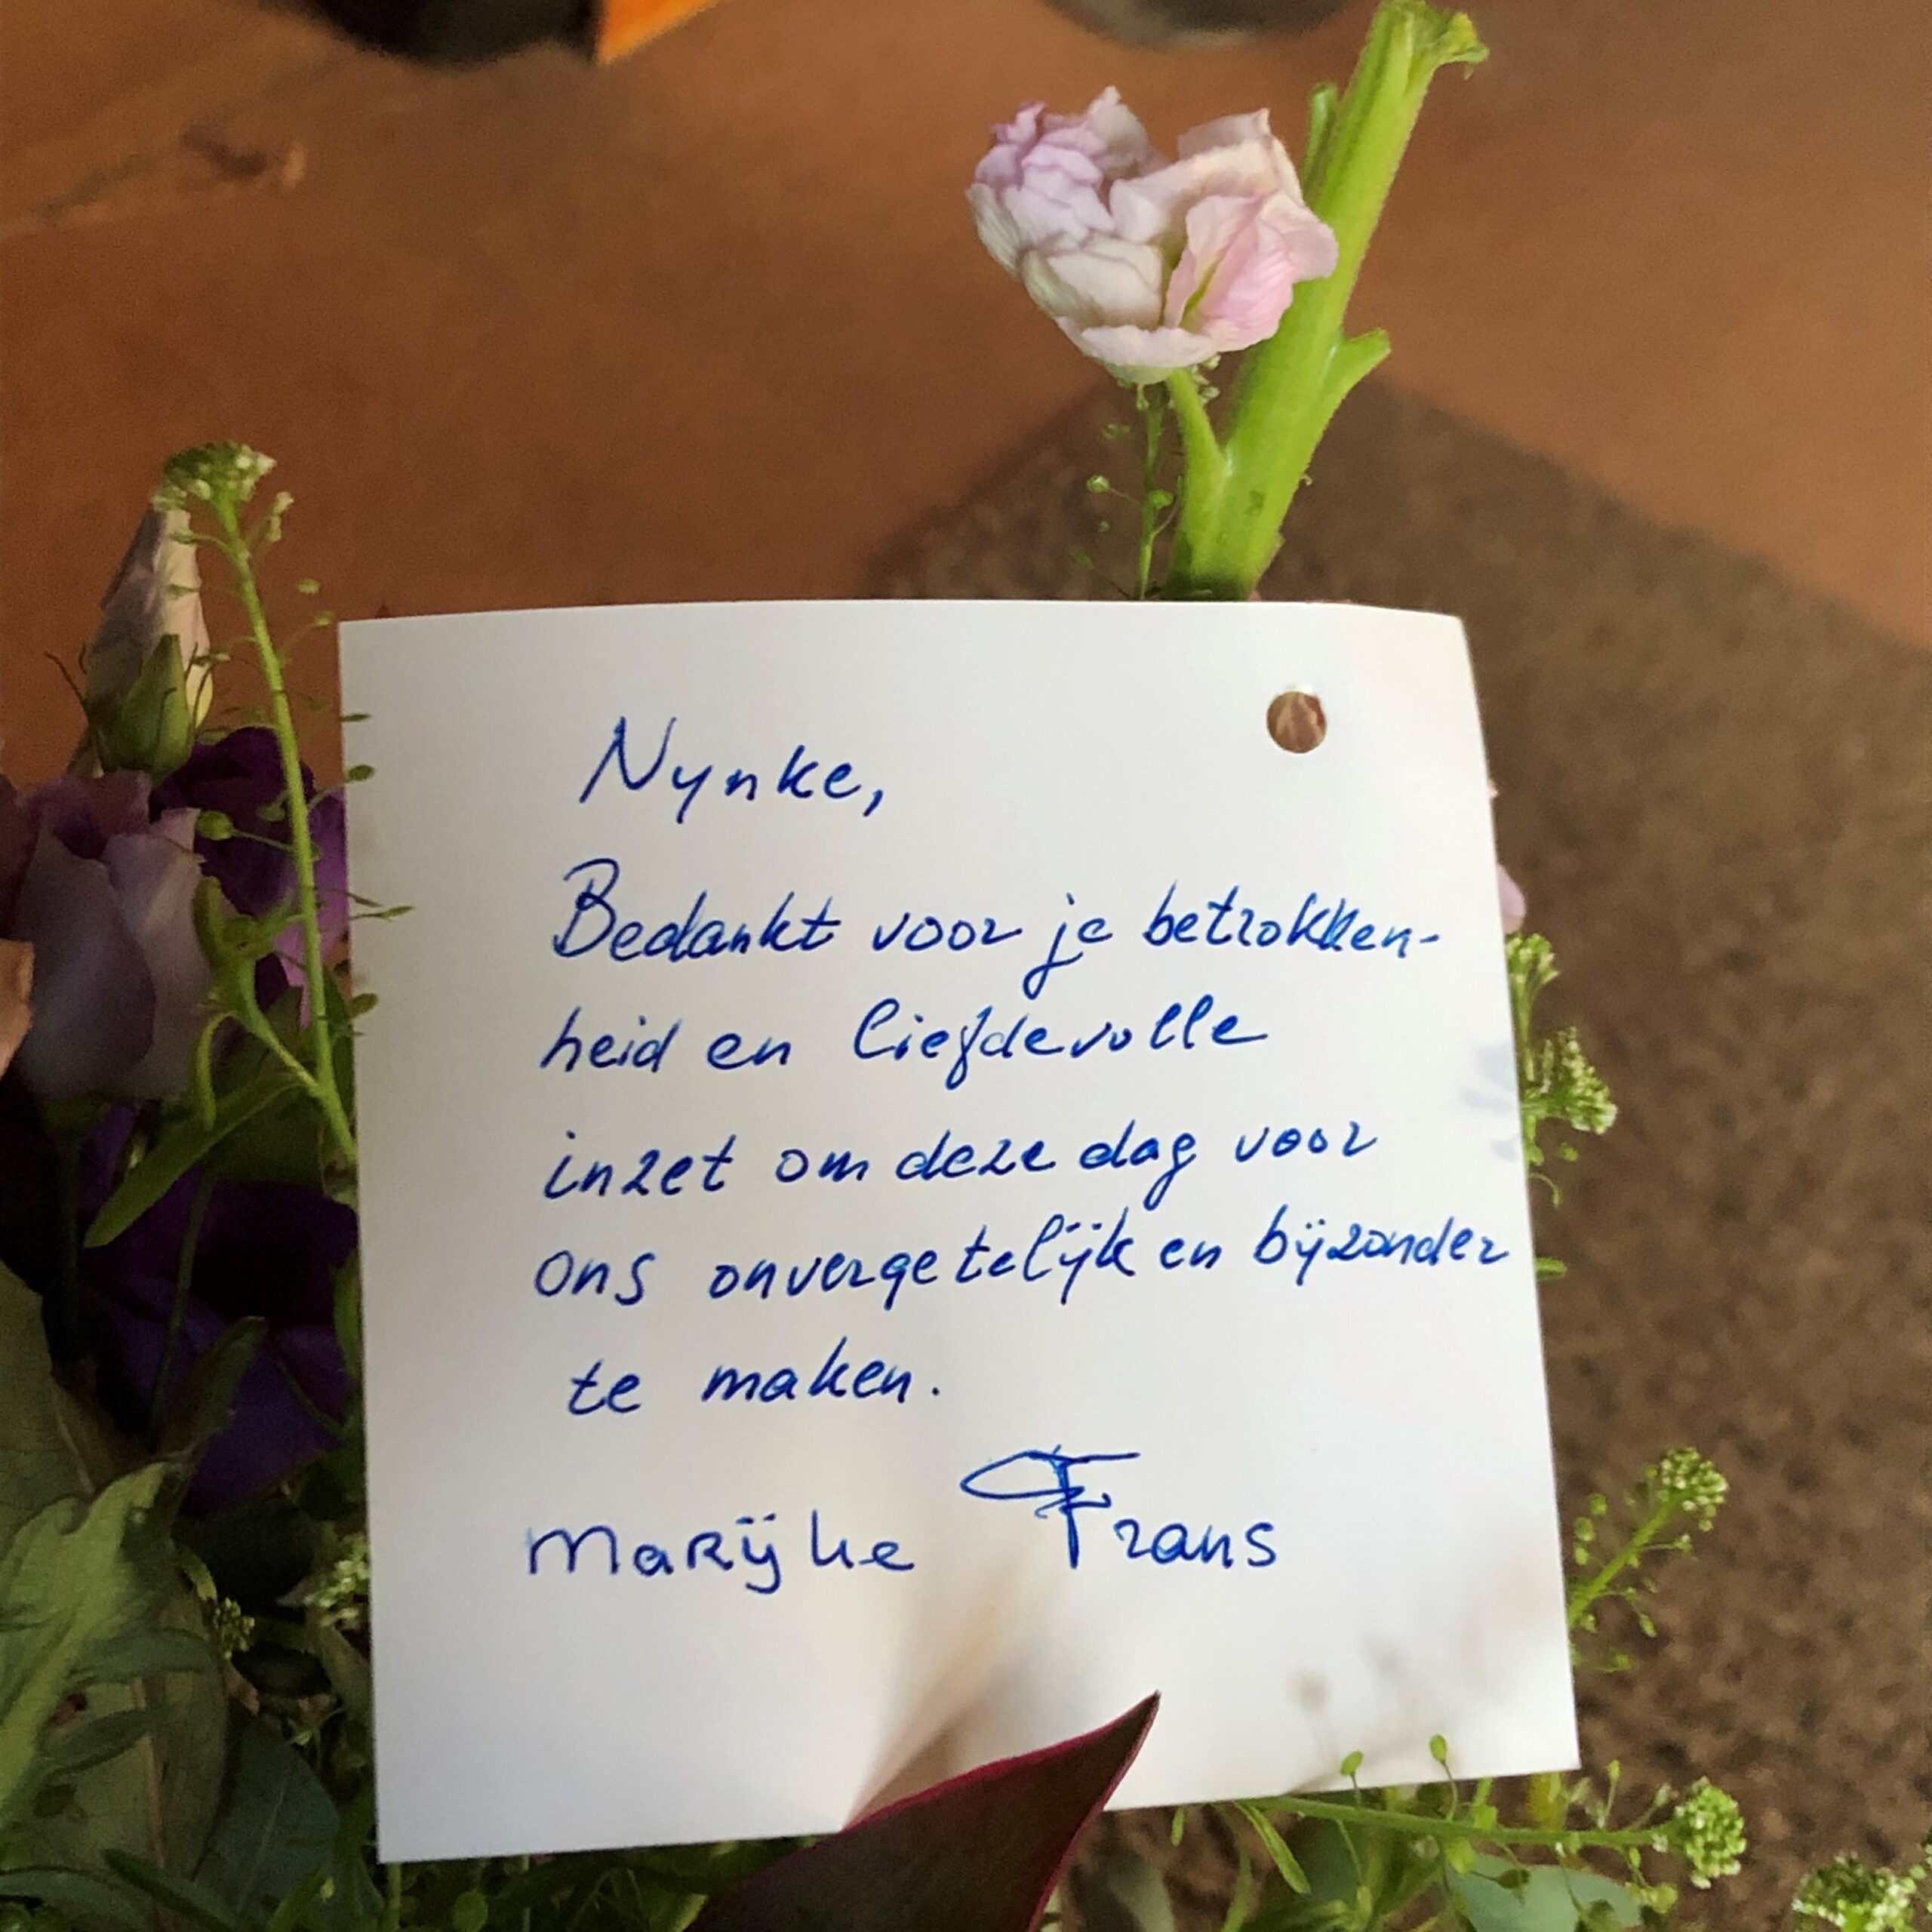 Nynke,
Bedankt voor je betrokken-
heid en liefdevolle
inzet om deze dag voor
ons onvergetelijk en bijzonder
te maken.
Marijke Frans